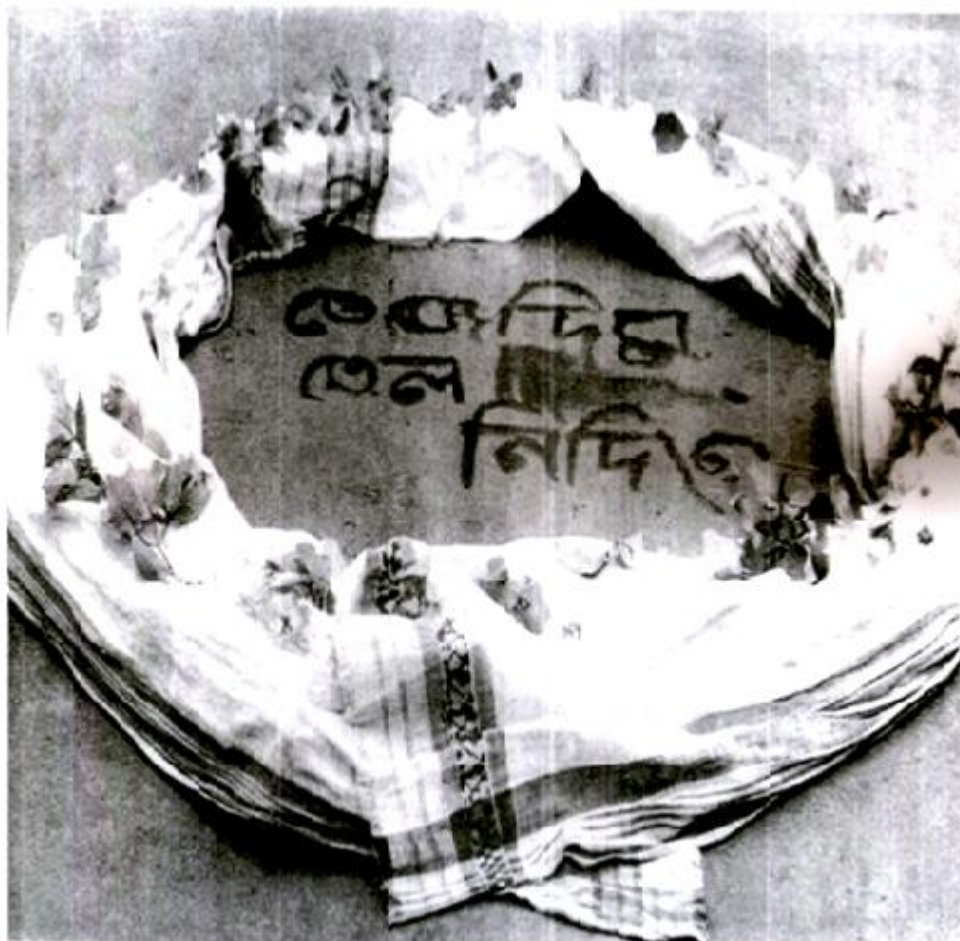 তেজ দিম
তেল
নিদিওঁ